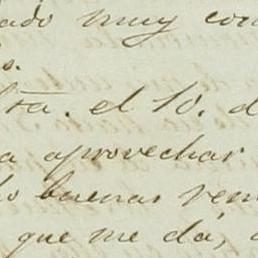 ado muy con
s.
ta. el 10. d
a aprovechar
lo buenas ven
que me da,